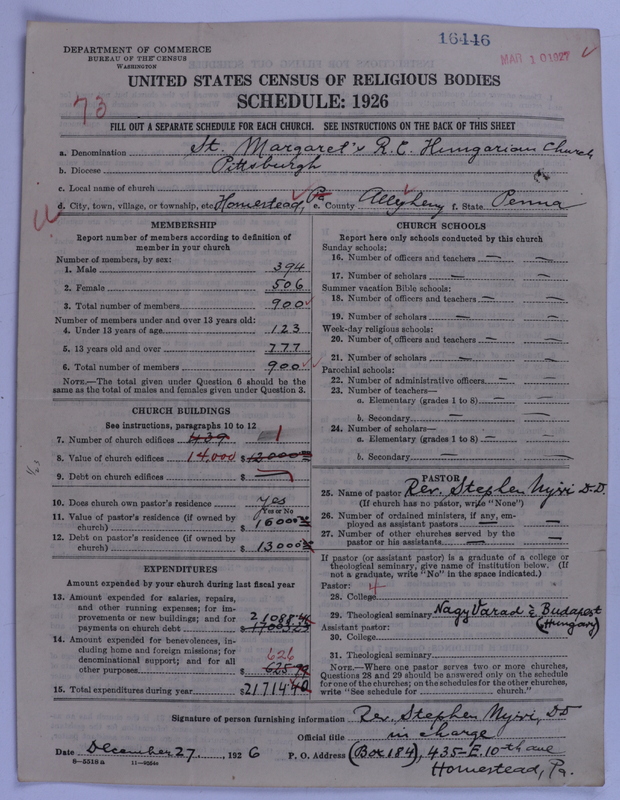 16446
MAR 10 1927
DEPARTMENT OF COMMERCE
BUREAU OF THE CENSUS
WASHINGTON
UNITED STATES CENSUS OF RELIGIOUS BODIES
SCHEDULE: 1926
73
FILL OUT A SEPARATE SCHEDULE FOR EACH CHURCH. SEE INSTRUCTIONS ON THE BACK OF THIS SHEET
a. Denomination St. Margaret's R.C. Hungarian Church
b. Diocese Pittsburgh
c. Local name of church
d. City, town, village, or township, etc. Homestead, Pa e. County Allegheny f. State Penna
MEMBERSHIP
Report number of members according to definition of
member in your church
Number of members, by sex:
1. Male 394
2. Female 506
3. Total number of members 900
Number of members under and over 13 years old:
4. Under 13 years of age 123
5. 13 years old and over 777
6. Total number of members 900
NOTE.—The total given under Question 6 should be the
same as the total of males and females given under Question 3.
CHURCH BUILDINGS
See instructions, paragraphs 10 to 12
7. Number of church edifices 439 1
8. Value of church edifices 14,000 $ 12000
9. Debt on church edifices $
10. Does church own pastor's residence yes
Yes or No
11. Value of pastor's residence (if owned by
church) $ 16000
12. Debt on pastor's residence (if owned by
church) $ 13000
EXPENDITURES
Amount expended by your church during last fiscal year
13. Amount expended for salaries, repairs,
and other running expenses; for im-
provements or new buildings; and for
payments on church debt $ 21088
14. Amount expended for benevolences, in-
cluding home and foreign missions; for
denominational support; and for all
other purposes 626 $ 625
15. Total expenditures during year $ 21714
CHURCH SCHOOLS
Report here only schools conducted by this church
Sunday schools:
16. Number of officers and teachers — —
17. Number of scholars — —
Summer vacation Bible schools:
18. Number of officers and teachers — —
19. Number of scholars — —
Week-day religious schools:
20. Number of officers and teachers — —
21. Number of scholars — —
Parochial schools:
22. Number of administrative officers — —
23. Number of teachers—
a. Elementary (grades 1 to 8) — —
b. Secondary — —
24. Number of scholars—
a. Elementary (grades 1 to 8) — —
b. Secondary — —
PASTOR
25. Name of pastor Rev. Stephen Nyiri D.D.
(If church has no pastor, write "None")
26. Number of ordained ministers, if any, em-
ployed as assistant pastors — —
27. Number of other churches served by the
pastor or his assistants — —
If pastor (or assistant pastor) is a graduate of a college or
theological seminary, give name of institution below. (If
not a graduate, write "No" in the space indicated.)
Pastor: 4
28. College
29. Theological seminary Nagy Varad & Budapest
(Hungary)
Assistant pastor:
30. College
31. Theological seminary
NOTE.—Where one pastor serves two or more churches,
Questions 28 and 29 should be answered only on the schedule
for one of the churches; on the schedules for the other churches,
write "See schedule for church."
Signature of person furnishing information Rev. Stephen Nyiri, DD
Official title in charge
Date December 27, 1926 P. O. Address (Box 184), 435-E. 10-th ave
8—5518 a 11—9264a Homestead, Pa.